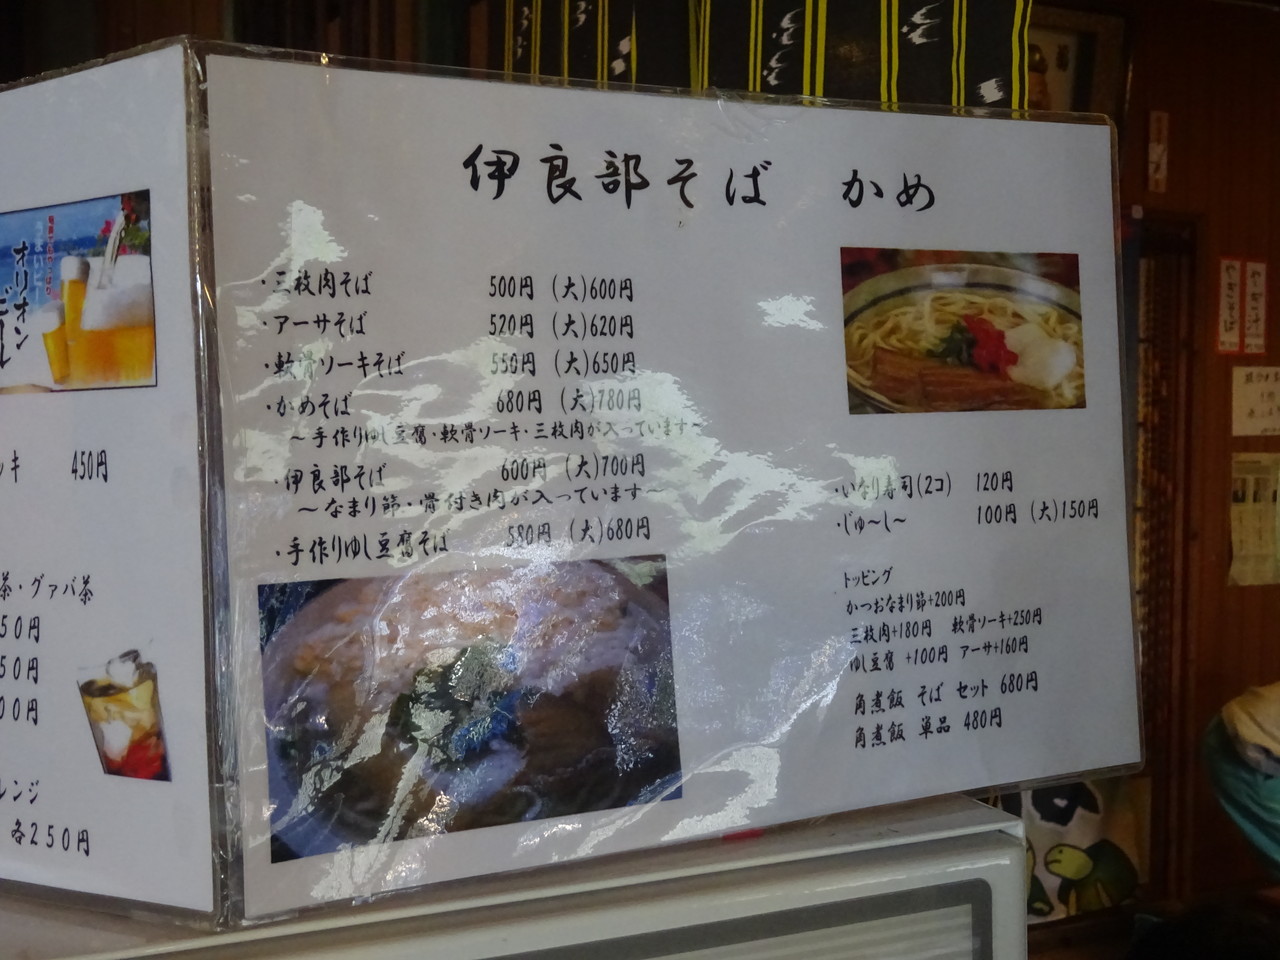 伊良部そば かめ
・三枚肉そば 500円 (大)600円
・アーサそば 520円 (大)620円
・軟骨ソーキそば 550円 (大)650円
・かめそば 680円 (大)780円
～手作りゆし豆腐・軟骨ソーキ・三枚肉が入っています～
・伊良部そば 600円 (大)700円
～なまり節・骨付き肉が入っています～
・手作りゆし豆腐そば 580円 (大)680円
・いなり寿司(2コ) 120円
・じゅ～し～ 100円 (大)150円
トッピング
かつおなまり節+200円
三枚肉+180円 軟骨ソーキ+250円
ゆし豆腐 +100円 アーサ+160円
角煮飯 そば セット 680円
角煮飯 単品 480円
オリオン
ビール
ッキ 450円
茶・グァバ茶
50円
50円
00円
レンジ
各250円